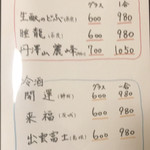 グラス 一合
生酛のどぶ 600 980
睡龍 600 980
丹澤山 麗峰 700 1050
冷酒
グラス 一合
開運 600 980
来福 600 980
出雲富士 600 980